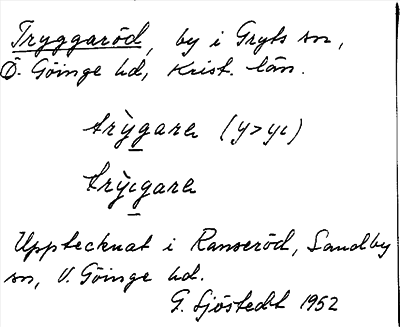 Tryggaröd, by i Gryts sn,
Ö. Göinge hd, Krist. län.
trỳgarə (y>yı)
trỳıgarə
Upptecknat i Ranseröd, Sandby
sn, V. Göinge hd.
G. Sjöstedt 1952